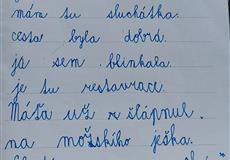 mám tu sluchátka.
cesta byla dobrá.
já sem blinkala.
je tu restaurace.
Máša už ve šlápnul.
na mořskiho ješka.